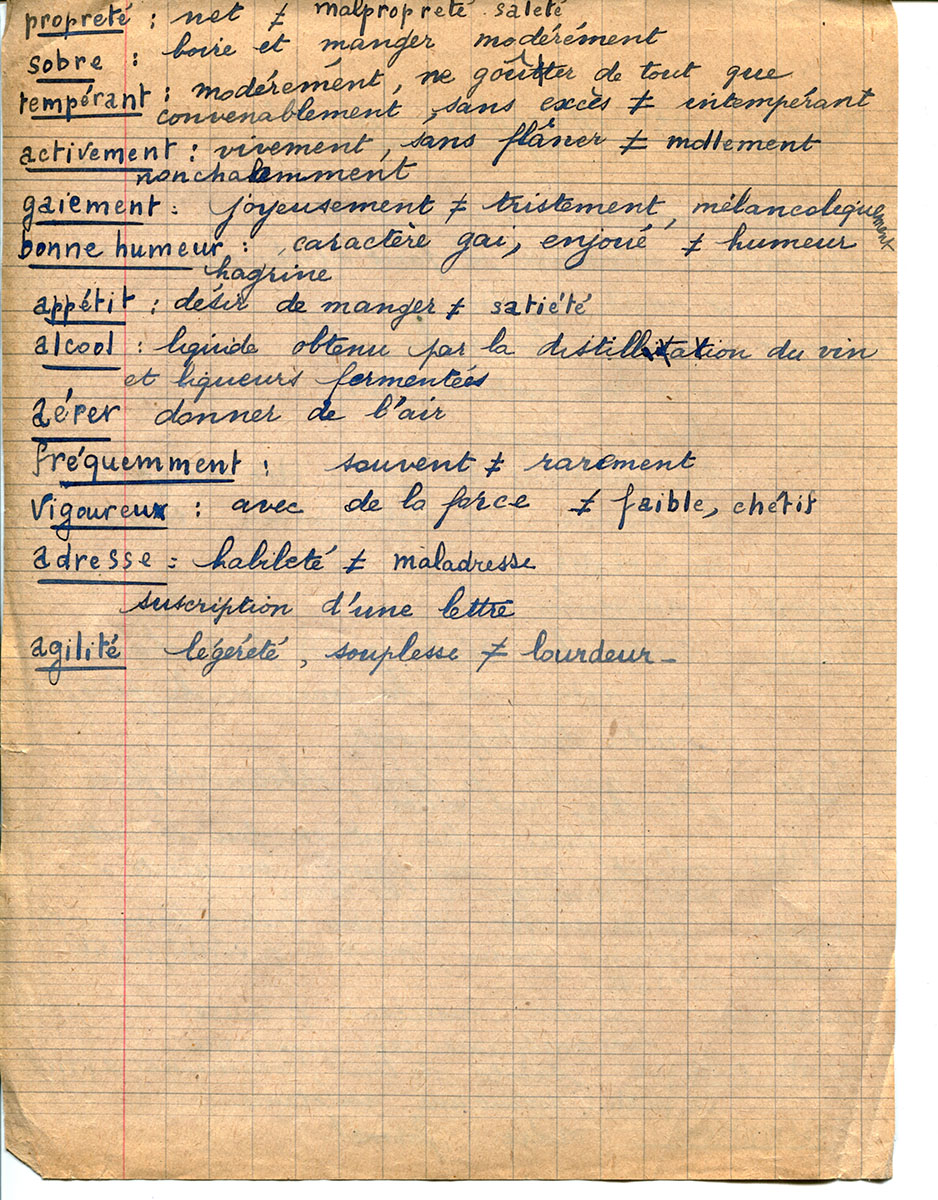 propreté : net ≠ malpropreté saleté
sobre : boire et manger modérément
tempérant : modérément, ne goûter de tout que
convenablement, sans excès ≠ intempérant
activement : vivement, sans flâner ≠ mollement
nonchalemment
gaiement : joyeusement ≠ tristement, mélancoliquement
bonne humeur : caractère gai, enjoué ≠ humeur
hagrine
appétit : désir de manger ≠ satiété
alcool : liquide obtenu par la distillation du vin
et liqueurs fermentées
aérer donner de l'air
fréquemment : souvent ≠ rarement
vigoureux : avec de la force ≠ faible, chétif
adresse : habileté ≠ maladresse
suscription d'une lettre
agilité légéreté, souplesse ≠ lourdeur_